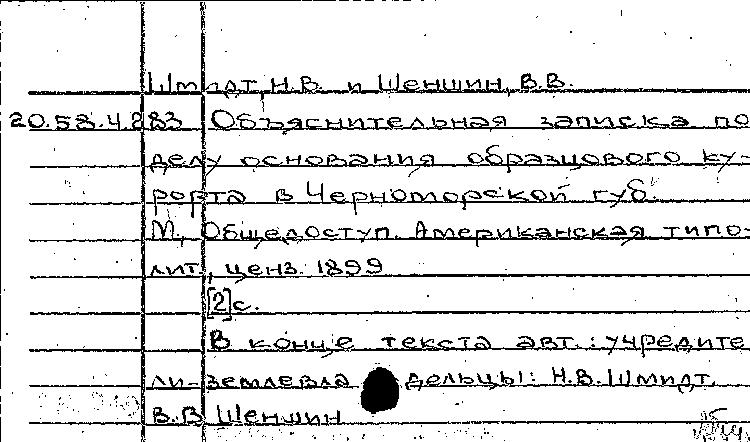 Шмидт, Н.В. и Шеншин, В.В.
20.58.4.283 Объяснительная записка по
делу основания образцового ку-
рорта в Черноморской губ.
М., Общедоступ. Американская типо-
лит., ценз. 1899
[2]с.
В конце текста авт.: учредите
ли-землевла дельцы: Н.В. Шмидт,
В.В Шеншин